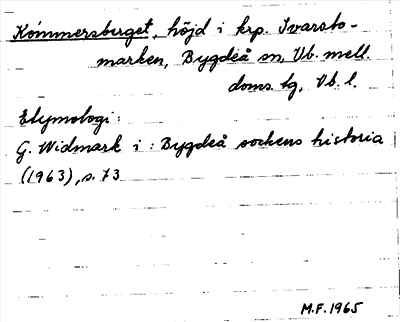 Kommersberget, höjd i krp. Ivarsbo-
marken, Bygdeå sn, Vb. mell.
doms. tg, Vb. l.
Etymologi:
G. Widmark i: Bygdeå sockens historia
(1963), s. 73
M.F. 1965